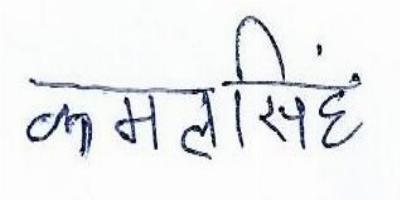 कमलसिंह